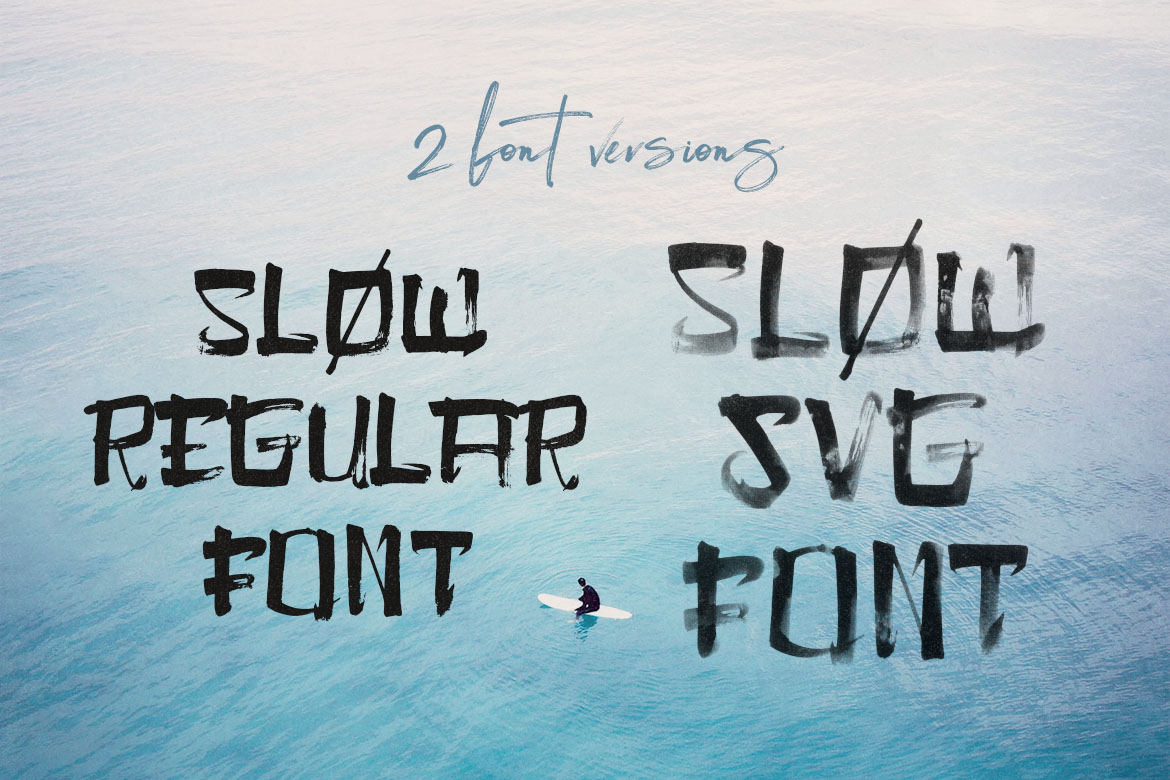 2 font versions
SLØW
REGULAR
FONT
SLØW
SVG
FONT